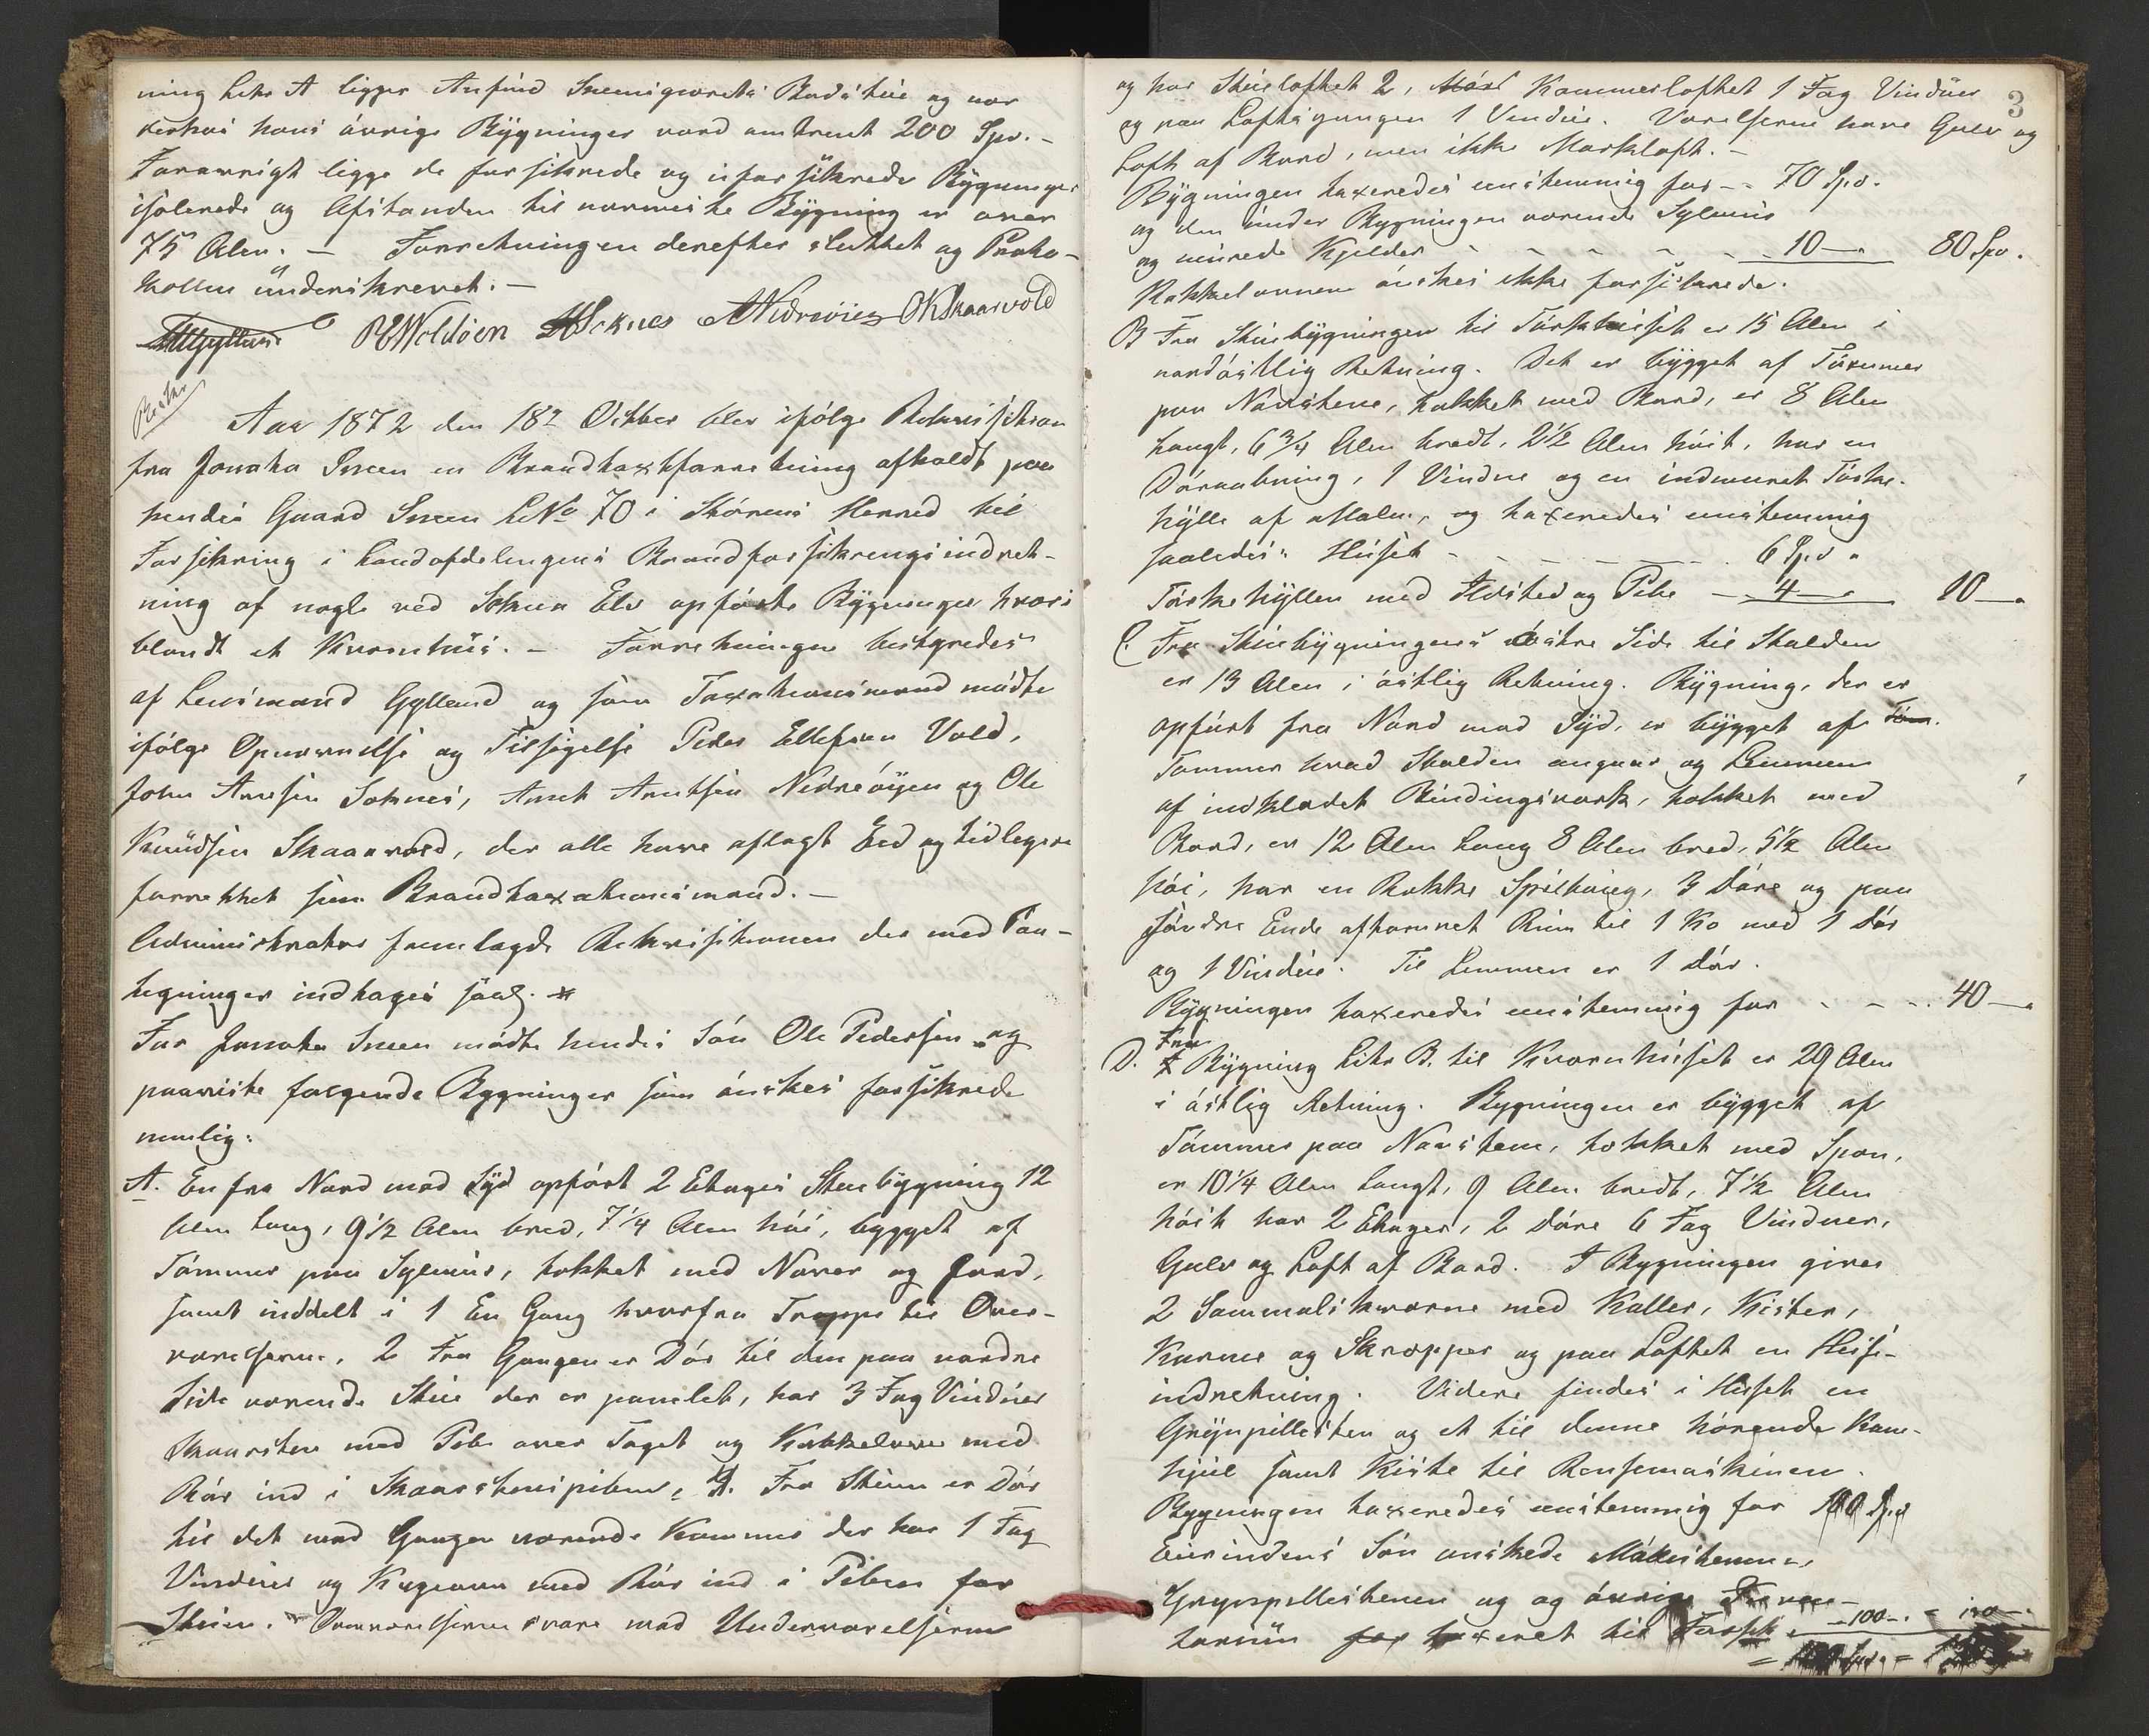 ning Litr A ligger Arfind Sneeingaretsˈ Badstue og nor
derhos hans øvrige Bygninger værd omtrent 200 Spd. -
Forøvrigt ligge de forsikrede og uforsikrede Bygninger
isolerede og Afstanden til nærmeste Bygning er over
75 Alen. - Forretningen derefter sluttet og Proto-
kollen underskrevet. -
Gylland PEWoldøien Soknes ANidreøien OKSkaarvold
Aar 1872 den 18de Octbr blev ifølge Rekvisition
fra Jonetta Sneen en Brandtaxtforretning afholdt paa
hendes Gaard Sneen LNo 70 i Størens Herred til
Forsikring i Landafdelingens Brandforsikringsindret-
ning af nogle ved Sokna Elv opførte Bygninger hvori
blandt et Kvernhus. - Forretningen bestyredes
af Lensmand Gylland og som Taxationsmænd mødte
ifølge Opnævnelse og Tilsigelse Peder Ellefsen Vold,
John Arnesen Soknes, Arnt Arntsen Nidreøyen og Ole
Knudsen Skaarvold, der alle have aflagt Eed og tidligere
forrettet som Brandtaxationsmænd. -
Administrator fremlagde Rekvisitionen der med Paa-
tegninger indtages saal. #
For Jonetta Sneen mødte hendes Søn Ole Pedersen og
paaviste følgende Bygninger som ønskes forsikrede
nemlig:
A. En fra Nord mod Syd opført 2 Etages Stuebygning 12
Alen lang, 9 1/2 Alen bred, 7 1/4 Alen høi, bygget af
Tømmer paa Sylmur, tækket med Næver og Jord,
samt inddelt i 1 En Gang hvorfra Trappe til Over-
værelserne. 2 Fra Gangen er Dør til den paa nordre
Side værende Stue der er panelet, har 3 Fag Vinduer
Skaarsten med Pibe over Taget og Kakkelovn med
Rør ind i Skaarstenspiben. Fra Stuen er Dør
til det mod Gangen værende Kammer der har 1 Fag
Vinduer og Kogeovn med Rør ind i Piben for
Stuen. Overværelserne svare mod Underværelserne
3
og har Stueloftet 2, Kammerloftet 1 Fag Vinduer
og paa Loftsgangen 1 Vindue. Værelserne have Gulv og
Loft af Bord, men ikke Markloft. -
Bygningen taxeredes enstemmig for - - 70 Spd.
og den under Bygningen værende Sylmur
og murede Kjelder - - - - - - 10 — " 80 Spd.
Kakkelovnene ønskes ikke forsikrede.
B Fra Stuebygningen til Tørkhuset er 15 Alen i
nordøstlig Retning. Det er bygget af Tømmer
paa Navstene, tækket med Bord, er 8 Alen
langt, 6 3/4 Alen bredt, 2 1/2 Alen høit, har en
Døraabning, 1 Vindue og en indmuret Tørke-
hylle af Malm, og taxeredes enstemmig
saaledes: Huset - - - - - - 6 Spd "
Tørkehyllen med Ildsted og Pibe - 4 — " 10 — "
C. Fra Stuebygningens østre Side til Stalden
er 13 Alen i østlig Retning. Bygning, der er
opført fra Nord mod Syd, er bygget af
Tømmer hvad Stalden angaar og Lemmen
af indklædet Bindingsværk, tækket med
Bord, er 12 Alen lang 8 Alen bred, 5 1/2 Alen
høi, har en Række Spiltaug, 3 Døre og paa
søndre Ende aftømret Rum til 1 Ko med 1 Dør
og 1 Vindue. Til Lemmen er 1 Dør.
Bygningen taxeredes enstemmig for - - - 40 — "
D. Fra Bygning Litr B. til Kvernhuset er 29 Alen
i østlig Retning. Bygningen er bygget af
Tømmer paa Navstene, tækket med Spon,
er 10 1/4 Alen langt, 9 Alen bredt, 7 1/2 Alen
høit har 2 Etager, 2 Døre 6 Fag Vinduer,
Gulv og Loft af Bord. I Bygningen gives
2 Sammalskværne med Kaller, Kister,
Karme og Skrepper og paa Loftet en Heise-
indretning. Videre findes i Huset en
Grynpillesten og et til denne hørende Kam-
hjul samt Kiste til Rensemaskinen.
Bygningen taxeredes enstemmig for 100 Spd
Eierindens Søn ønskede Møllestenene,
Grynpillestenen og og øvrige Inven-
tarium taxeret til - 100 - "